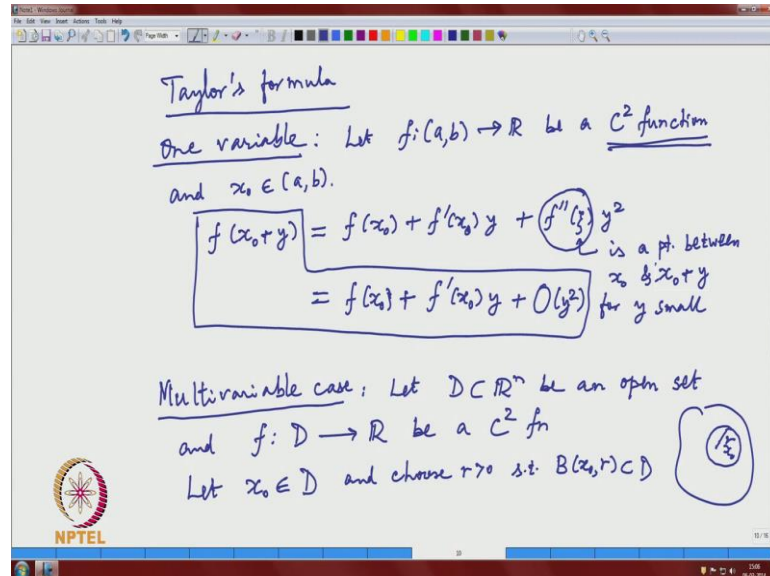 Note1 - Windows Journal
File Edit View Insert Actions Tools Help
Page Width
Taylor's formula
One variable: Let f: (a,b) → ℝ be a C² function
and x₀ ∈ (a,b).
f(x₀+y) = f(x₀) + f'(x₀) y + f''(ξ) y²
is a pt. between
x₀ & x₀+y
= f(x₀) + f'(x₀) y + O(y²)
for y small
Multivariable case: Let D ⊂ ℝⁿ be an open set
and f: D → ℝ be a C² fn
Let x₀ ∈ D and choose r>0 s.t. B(x₀,r) ⊂ D
r
x₀
NPTEL
10/16
10
15:06